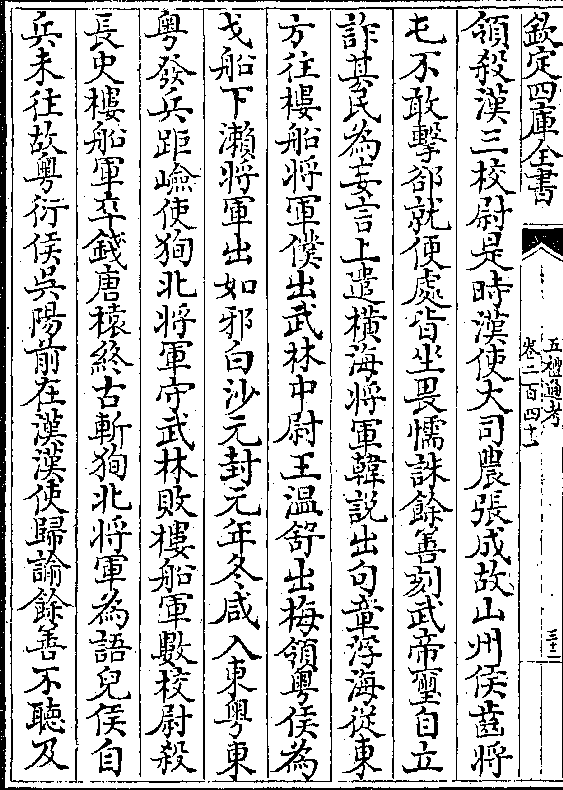 欽定四庫全書
五禮通考
卷二百四十一
三十二
領殺漢三校尉是時漢使大司農張成故山州侯齒將
屯不敢擊郤就便處皆坐畏懦誅餘善刻武帝璽自立
詐其民為妄言上遣橫海將軍韓說出句章浮海從東
方往樓船將軍僕出武林中尉王温舒出梅領粤侯為
戈船下瀨將軍出如邪白沙元封元年冬咸入東粤東
粤發兵距嶮使狥北將軍守武林敗樓船軍數校尉殺
長史樓船軍卒錢唐榬終古斬狥北將軍為語兒侯自
兵未往故粤衍侯吳陽前在漢漢使歸諭餘善不聽及